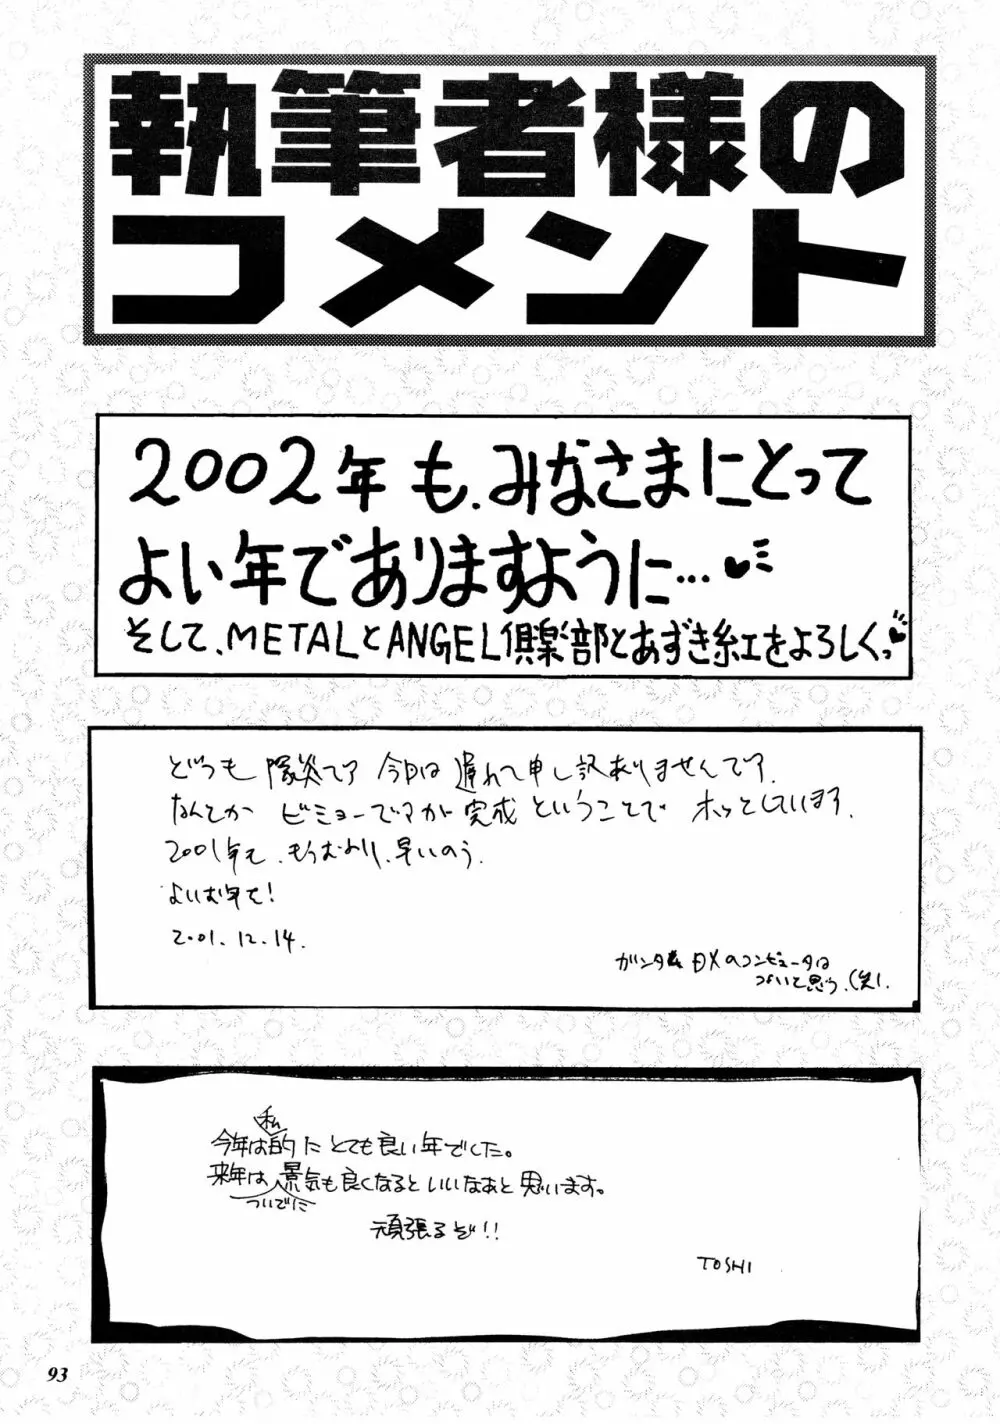 執筆者様の
コメント
2002年も、みなさまにとって
よい年でありますように…
そして、METALとANGEL倶楽部とあずき紅をよろしくっ
どうも 隊炎です 今回は 遅れて申し訳ありませんです.
なんとか ビミョーですが 完成 ということで ホッとしています.
2001年も、もうむより、早いのう.
よいお年を!
2001.12.14.
DXのコンピュータは
つよいと思う.(笑).
私
今年は的にとても良い年でした。
来年は景気も良くなるといいなあと思います。
ついでに
頑張るぞ!!
TOSHI
93